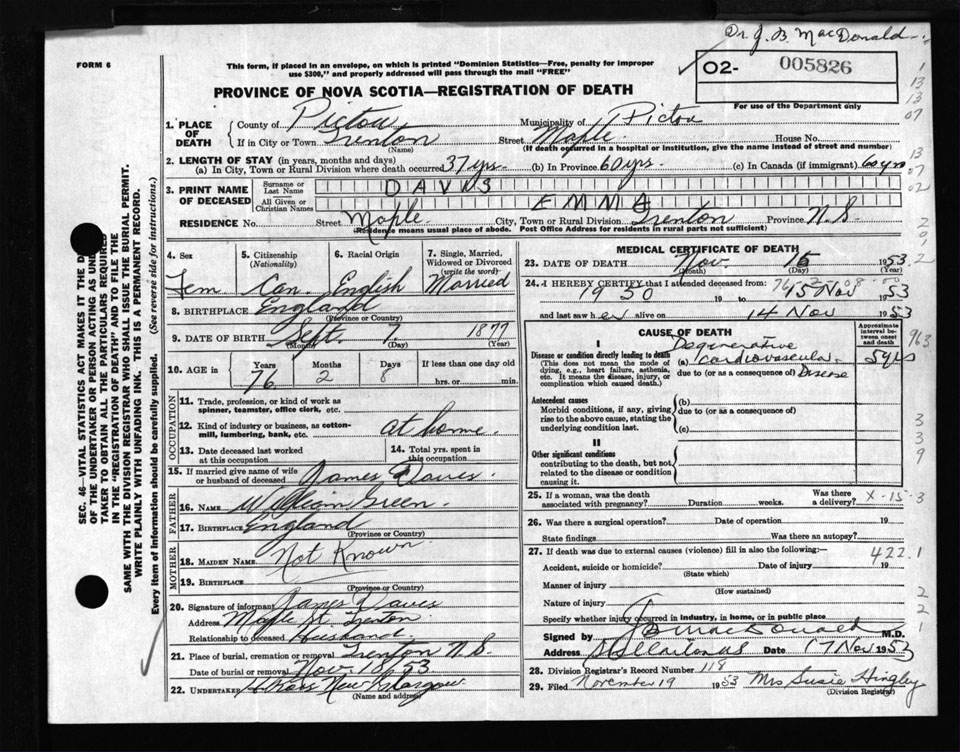 Dr. J. B. MacDonald
FORM 6
This form, if placed in an envelope, on which is printed "Dominion Statistics—Free, penalty for improper
use $300," and properly addressed will pass through the mail "FREE"
O2- 005826
PROVINCE OF NOVA SCOTIA—REGISTRATION OF DEATH
For use of the Department only
1. PLACE OF DEATH
County of Pictou Municipality of Pictou
If in City or Town Trenton Street Maple House No.
(Name) (If death occurred in a hospital or institution, give the name instead of street and number)
2. LENGTH OF STAY (in years, months and days)
(a) In City, Town or Rural Division where death occurred 37 yrs. (b) In Province 60 yrs. (c) In Canada (if immigrant) 60 yrs
3. PRINT NAME OF DECEASED
Surname or Last Name DAVIS
All Given or Christian Names EMMA
RESIDENCE No. Street Maple City, Town or Rural Division Trenton Province N.S.
(Residence means usual place of abode. Post Office Address for residents in rural parts not sufficient)
SEC. 46—VITAL STATISTICS ACT MAKES IT THE D
OF THE UNDERTAKER OR PERSON ACTING AS UND
TAKER TO OBTAIN ALL THE PARTICULARS REQUIRED
IN THE "REGISTRATION OF DEATH" AND TO FILE THE
SAME WITH THE DIVISION REGISTRAR WHO SHALL ISSUE THE BURIAL PERMIT.
WRITE PLAINLY WITH UNFADING INK. THIS IS A PERMANENT RECORD.
Every item of information should be carefully supplied. (See reverse side for instructions.)
4. Sex Fem.
5. Citizenship (Nationality) Can.
6. Racial Origin English
7. Single, Married, Widowed or Divorced (write the word) Married
8. BIRTHPLACE England
(Province or Country)
9. DATE OF BIRTH Sept. 7. 1877
(Month) (Day) (Year)
10. AGE in Years Months Days If less than one day old
76 2 8 hrs. or min.
OCCUPATION
11. Trade, profession, or kind of work as
spinner, teamster, office clerk, etc.
12. Kind of industry or business, as cotton-
mill, lumbering, bank, etc. at home.
13. Date deceased last worked
at this occupation
14. Total yrs. spent in
this occupation
15. If married give name of wife
or husband of deceased James Davis
FATHER
16. NAME William Green.
17. BIRTHPLACE England
(Province or Country)
MOTHER
18. MAIDEN NAME Not Known.
19. BIRTHPLACE
(Province or Country)
20. Signature of informant James Davis
Address Maple St. Trenton
Relationship to deceased Husband
21. Place of burial, cremation or removal Trenton N.S.
Date of burial or removal Nov. 18. 53
22. UNDERTAKER New Glasgow
(Name and address)
MEDICAL CERTIFICATE OF DEATH
23. DATE OF DEATH Nov. 15 1953
(Month) (Day) (Year)
24. I HEREBY CERTIFY that I attended deceased from:
1950 19 to 15 Nov 1953
and last saw her alive on 14 Nov 1953
CAUSE OF DEATH
Approximate interval between onset and death
I
Disease or condition directly leading to death
(This does not mean the mode of
dying, e.g., heart failure, asthenia,
etc. It means the disease, injury, or
complication which caused death.)
Degenerative
(a) Cardiovascular 5 yrs
due to (or as a consequence of) Disease
Antecedent causes
Morbid conditions, if any, giving
rise to the above cause, stating the
underlying condition last.
(b)
due to (or as a consequence of)
(c)
II
Other significant conditions
contributing to the death, but not
related to the disease or condition
causing it.
25. If a woman, was the death
associated with pregnancy? Duration weeks. Was there a delivery? X-15-3
26. Was there a surgical operation? Date of operation 19
State findings Was there an autopsy?
27. If death was due to external causes (violence) fill in also the following:— 422.1
Accident, suicide or homicide? Date of injury 19
(State which)
Manner of injury
(How sustained)
Nature of injury
Specify whether injury occurred in industry, in home, or in public place
Signed by J B MacDonald M.D.
Address Stellarton NS Date 17 Nov 1953
28. Division Registrar's Record Number 118
29. Filed November 19 1953 Mrs Susie Hingley
(Division Registrar)